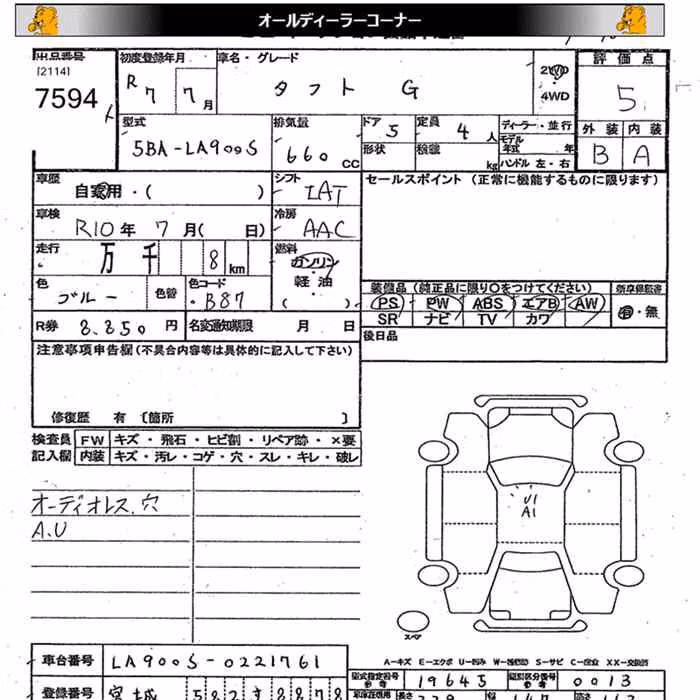 オールディーラーコーナー
出品番号
[2114]
7594
初度登録年月
R7 7月
車名・グレード
タフト G
2WD
4WD
評価点
5
外装 内装
B A
型式
5BA-LA900S
排気量
660 CC
ドア 5
形状
定員 4 人
積載 kg
ディーラー・並行
モデル年式 年
ハンドル 左・右
車歴
自家用・( )
シフト
IAT
セールスポイント (正常に機能するものに限ります)
車検
R10年 7月( 日)
冷房
AAC
走行
万 千 8 km
燃料
ガソリン
・
軽油
( )
色
ブルー
色替
色コード
B87
装備品 (純正品に限り○をつけてください)
PS PW ABS エアB AW
SR ナビ TV カワ
新車保証書
有・無
R券 8,850 円
名変通知期限 月 日
後日品
注意事項申告欄(不具合内容等は具体的に記入して下さい)
修復歴 有 〔箇所 〕
検査員 FW キズ・飛石・ヒビ割・リペア跡・×要
記入欄 内装 キズ・汚レ・コゲ・穴・スレ・キレ・破レ
オーディオレス、穴
A.U
U1
A1
スペア
A-キズ E-エクボ U-凹み W-補修跡 S-サビ C-腐食 XX-交換済
車台番号 LA900S-0221761
型式指定番号 19645
類別区分番号 0013
登録番号 宮城 582
長さ